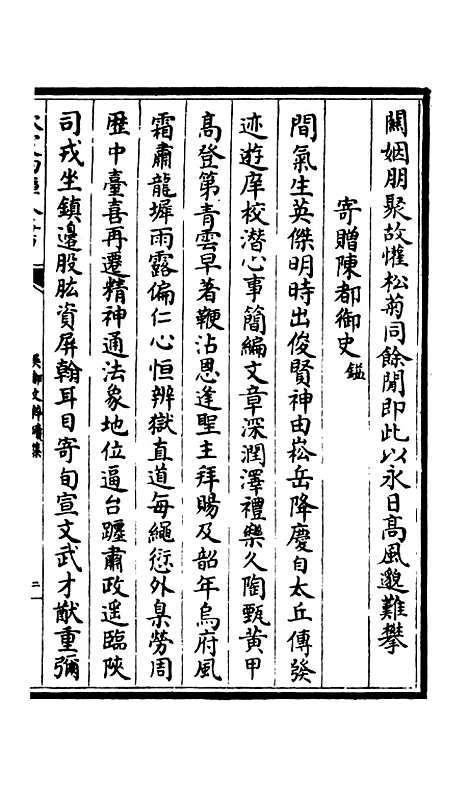 關姻朋聚故懽松菊同餘閒即此以永日高風邈難攀
寄贈陳都御史鎰
間氣生英傑明時出俊賢神由崧岳降慶自太丘傳發
迹遊庠校潜心事簡編文章深潤澤禮樂久陶甄黄甲
高登第青雲早著鞭沾恩逢聖主拜賜及韶年烏府風
霜肅龍墀雨露偏仁心恒辨獄直道每繩愆外臬勞周
歷中臺喜再遷精神通法象地位逼台躔肅政遥臨陜
司戎坐鎮邊股肱資屏翰耳目寄旬宣文武才猷重彌
吳都文粹續集
二